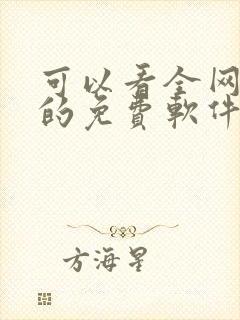 可以看全网
的免費軟件
方海星